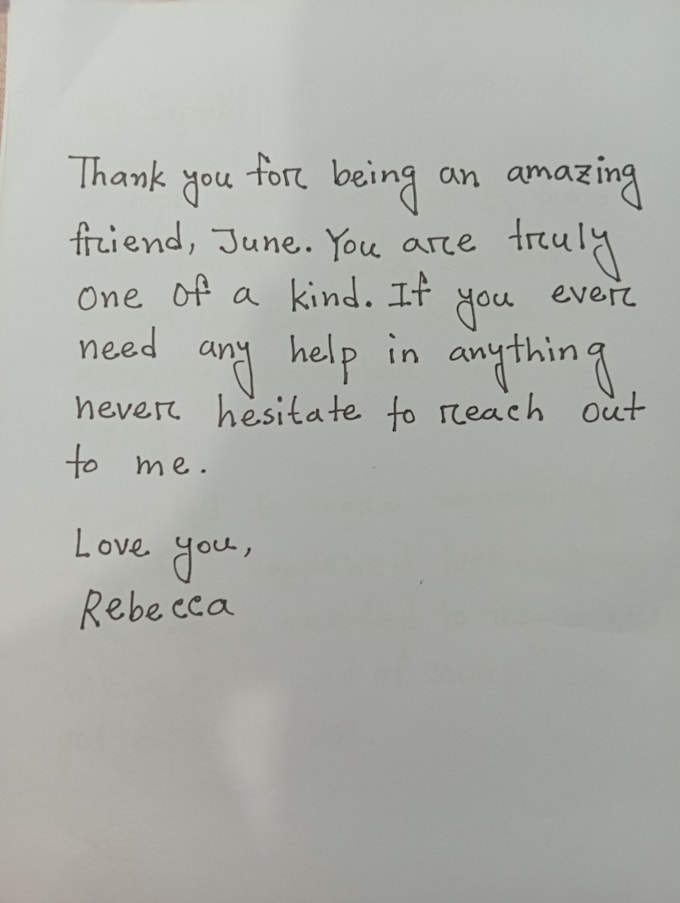 Thank you for being an amazing
friend, June. You are truly
one of a kind. If you ever
need any help in anything
never hesitate to reach out
to me.
Love you,
Rebecca